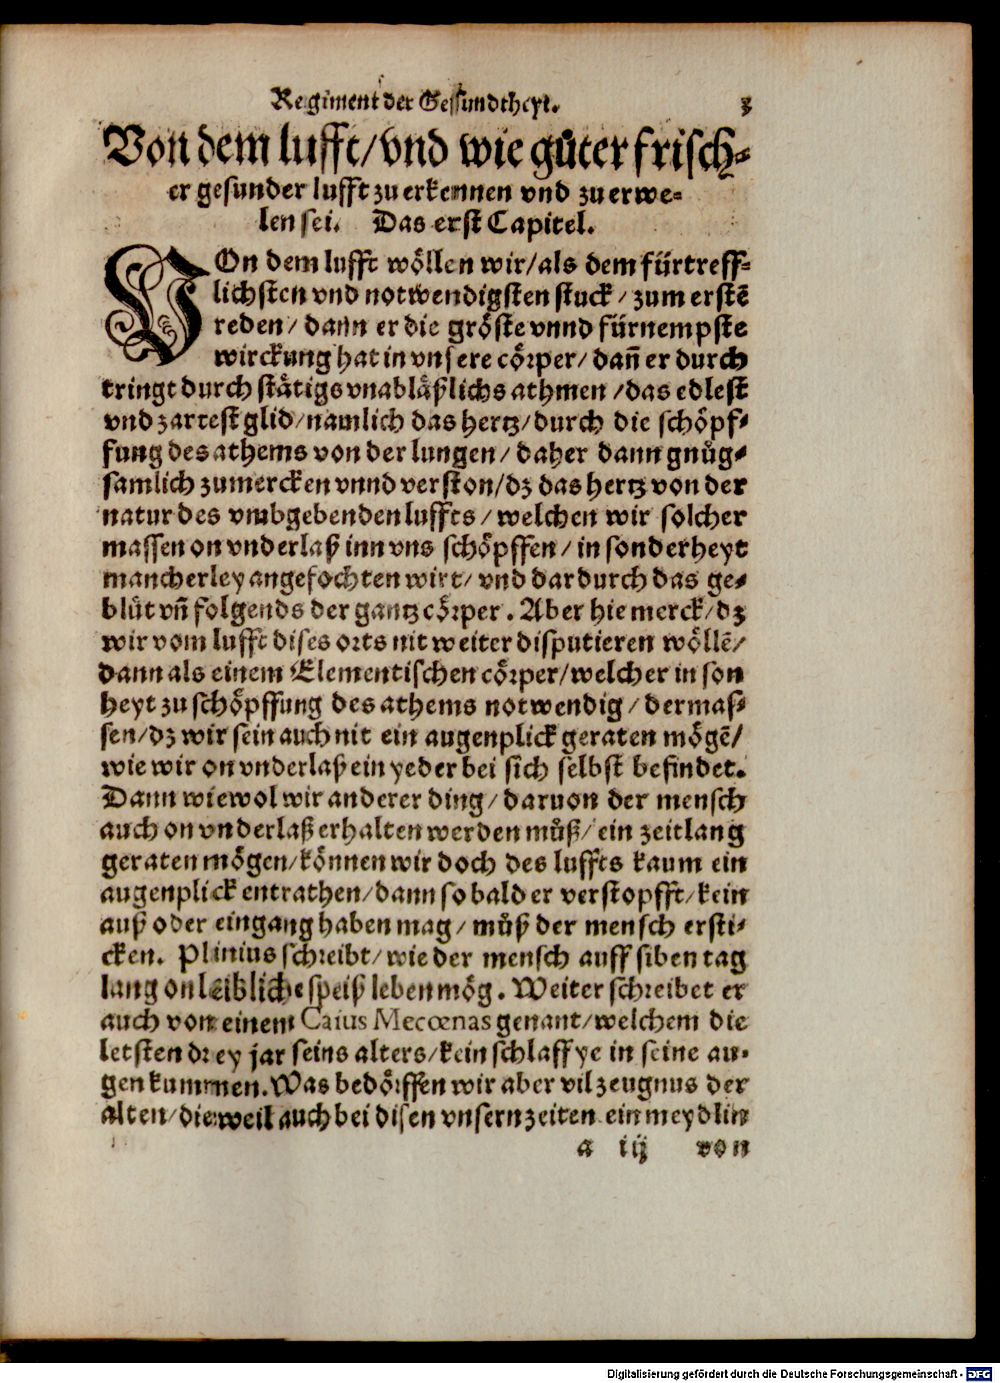 Regiment der Gessundtheyt. 3
Von dem lufft/vnd wie guͦter frisch-
er gesunder lufft zu erkennen vnd zu erwe-
len sei. Das erst Capitel.
VOn dem lufft woͤllen wir/als dem fürtreff-
lichsten vnd notwendigsten stuck/zum erstē
reden/dann er die groͤste vnnd fürnempste
wirckung hat in vnsere coͤrper/dañ er durch
tringt durch staͤtigs vnablaͤßlichs athmen/das edlest
vnd zartest glid/namlich das hertz/durch die schoͤpf-
fung des athems von der lungen/daher dann gnuͦg-
samlich zumercken vnnd verston/dz das hertz von der
natur des vmbgebenden luffts/welchen wir solcher
massen on vnderlaß inn vns schoͤpffen/in sonderheyt
mancherley angefochten wirt/vnd dardurch das ge-
bluͤt vñ folgends der gantz coͤrper. Aber hie merck/dz
wir vom lufft dises orts nit weiter disputieren woͤllē/
dann als einem Elementischen coͤrper/welcher in son
heyt zu schoͤpffung des athems notwendig/dermas-
sen/dz wir sein auch nit ein augenplick geraten moͤgē/
wie wir on vnderlaß ein yeder bei sich selbst befindet.
Dann wiewol wir anderer ding/daruon der mensch
auch on vnderlaß erhalten werden muͦß/ein zeitlang
geraten moͤgen/koͤnnen wir doch des luffts kaum ein
augenplick entrathen/dann so bald er verstopfft/kein
auß oder eingang haben mag/muͦß der mensch ersti-
cken. Plinius schreibt/wie der mensch auff siben tag
lang on leibliche speiß leben moͤg. Weiter schreibet er
auch von einem Caius Mecœnas genant/welchem die
letsten drey jar seins alters/kein schlaff ye in seine au-
gen kummen. Was bedoͤrffen wir aber vil zeugnus der
alten/dieweil auch bei disen vnsern zeiten ein meydlin
a iij von
Digitalisierung gefördert durch die Deutsche Forschungsgemeinschaft - DFG